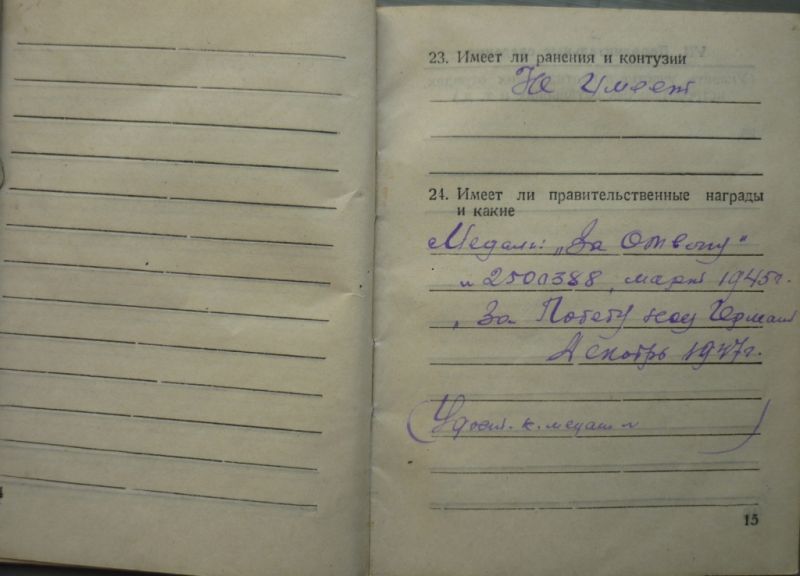 23. Имеет ли ранения и контузии
Не имеет
24. Имеет ли правительственные награды
и какие
Медаль: „За Отвагу"
№ 2500388, март 1945 г.
„За Победу над Герман
Декабрь 1947 г.
(Удост. к. медали)
15